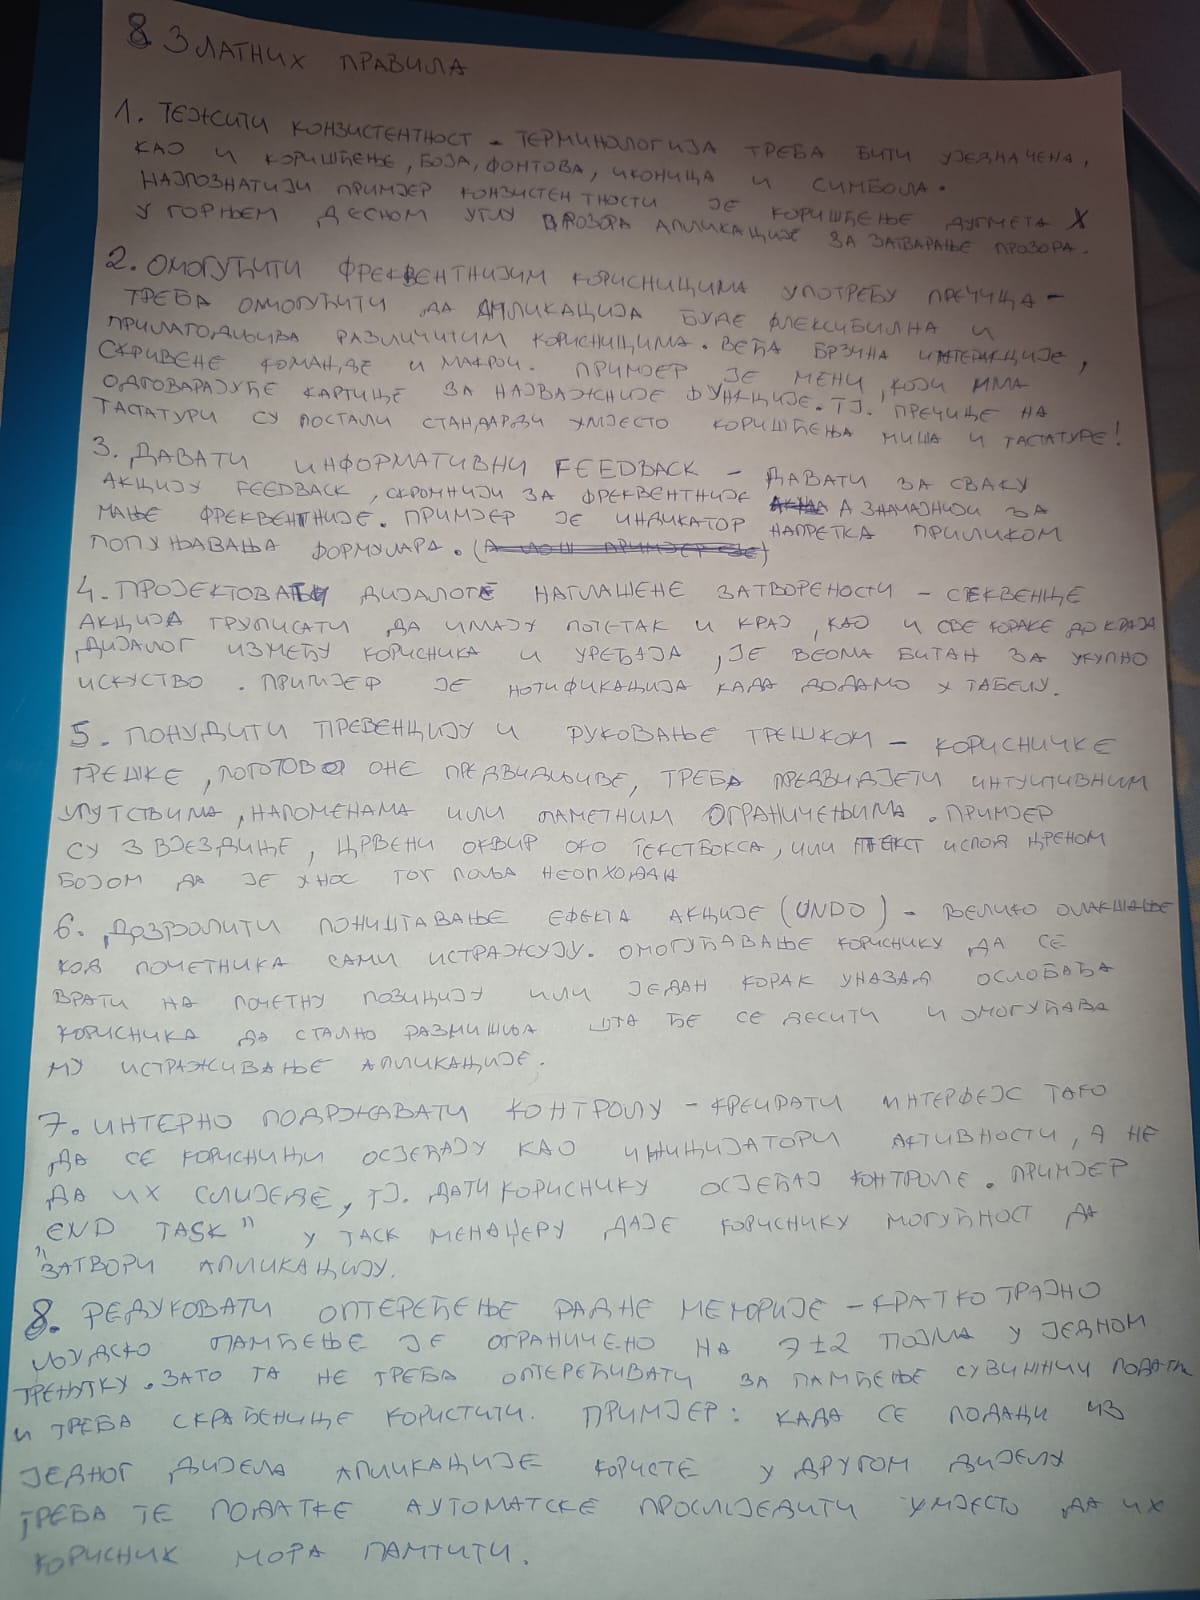 8 ЗЛАТНИХ ПРАВИЛА
1. ТЕЖИТИ КОНЗИСТЕНТНОСТ - ТЕРМИНОЛОГИЈА ТРЕБА БИТИ УЈЕДНАЧЕНА,
КАО И КОРИШЋЕЊЕ, БОЈА, ФОНТОВА, ИКОНИЦА И СИМБОЛА.
НАЈПОЗНАТИЈИ ПРИМЈЕР КОНЗИСТЕНТНОСТИ ЈЕ КОРИШЋЕЊЕ ДУГМЕТА X
У ГОРЊЕМ ДЕСНОМ УГЛУ ПРОЗОРА АПЛИКАЦИЈЕ ЗА ЗАТВАРАЊЕ ПРОЗОРА.
2. ОМОГУЋИТИ ФРЕКВЕНТНИЈИМ КОРИСНИЦИМА УПОТРЕБУ ПРЕЧИЦА -
ТРЕБА ОМОГУЋИТИ ДА АПЛИКАЦИЈА БУДЕ ФЛЕКСИБИЛНА И
ПРИЛАГОДЉИВА РАЗЛИЧИТИМ КОРИСНИЦИМА. ВЕЋА БРЗИНА ИНТЕРАКЦИЈЕ,
СКРИВЕНЕ КОМАНДЕ И МАКРОИ. ПРИМЈЕР ЈЕ МЕНИ КОЈИ ИМА
ОДГОВАРАЈУЋЕ КАРТИЦЕ ЗА НАЈВАЖНИЈЕ ФУНКЦИЈЕ. ТЈ. ПРЕЧИЦЕ НА
ТАСТАТУРИ СУ ПОСТАЛИ СТАНДАРДИ УМЈЕСТО КОРИШЋЕЊА МИША И ТАСТАТУРЕ!
3. ДАВАТИ ИНФОРМАТИВНИ FEEDBACK - ДАВАТИ ЗА СВАКУ
АКЦИЈУ FEEDBACK, СКРОМНИЈИ ЗА ФРЕКВЕНТНИЈЕ А ЗНАЧАЈНИЈИ ЗА
МАЊЕ ФРЕКВЕНТНИЈЕ. ПРИМЈЕР ЈЕ ИНДИКАТОР НАПРЕТКА ПРИЛИКОМ
ПОПУЊАВАЊА ФОРМУЛАРА. (А ЛОШ ПРИМЈЕР ЈЕ)
4. ПРОЈЕКТОВАТИ ДИЈАЛОГЕ НАГЛАШЕНЕ ЗАТВОРЕНОСТИ - СЕКВЕНЦЕ
АКЦИЈА ГРУПИСАТИ ДА ИМАЈУ ПОЧЕТАК И КРАЈ, КАО И СВЕ КОРАКЕ ДО КРАЈА
ДИЈАЛОГ ИЗМЕЂУ КОРИСНИКА И УРЕЂАЈА, ЈЕ ВЕОМА БИТАН ЗА УКУПНО
ИСКУСТВО. ПРИМЈЕР ЈЕ НОТИФИКАЦИЈА КАДА ДОДАМО У ТАБЕЛУ.
5. ПОНУДИТИ ПРЕВЕНЦИЈУ И РУКОВАЊЕ ГРЕШКОМ - КОРИСНИЧКЕ
ГРЕШКЕ, ПОГОТОВО ОНЕ ПРЕДВИДЉИВЕ, ТРЕБА ПРЕДВИДЈЕТИ ИНТУИТИВНИМ
УПУТСТВИМА, НАПОМЕНАМА ИЛИ ПАМЕТНИМ ОГРАНИЧЕЊИМА. ПРИМЈЕР
СУ ЗВЈЕЗДИЦЕ, ЦРВЕНИ ОКВИР ОКО ТЕКСТБОКСА, ИЛИ ТЕКСТ ИСПОД ЦРЕНОМ
БОЈОМ ДА ЈЕ УНОС ТОГ ПОЉА НЕОПХОДАН
6. ДОЗВОЛИТИ ПОНИШТАВАЊЕ ЕФЕКТА АКЦИЈЕ (UNDO) - ВЕЛИКО ОЛАКШАЊЕ
КОД ПОЧЕТНИКА САМИ ИСТРАЖУЈУ. ОМОГУЋАВАЊЕ КОРИСНИКУ ДА СЕ
ВРАТИ НА ПОЧЕТНУ ПОЗИЦИЈУ ИЛИ ЈЕДАН КОРАК УНАЗАД ОСЛОБАЂА
КОРИСНИКА ДА СТАЛНО РАЗМИШЉА ШТА ЋЕ СЕ ДЕСИТИ И ОМОГУЋАВА
МУ ИСТРАЖИВАЊЕ АПЛИКАЦИЈЕ.
7. ИНТЕРНО ПОДРЖАВАТИ КОНТРОЛУ - КРЕИРАТИ ИНТЕРФЕЈС ТАКО
ДА СЕ КОРИСНИЦИ ОСЈЕЋАЈУ КАО ИНИЦИЈАТОРИ АКТИВНОСТИ, А НЕ
ДА ИХ СЛИЈЕДЕ, ТЈ. ДАТИ КОРИСНИКУ ОСЈЕЋАЈ КОНТРОЛЕ. ПРИМЈЕР
"END TASK" У ТАСК МЕНАЏЕРУ ДАЈЕ КОРИСНИКУ МОГУЋНОСТ ДА
ЗАТВОРИ АПЛИКАЦИЈУ.
8. РЕДУКОВАТИ ОПТЕРЕЋЕЊЕ РАДНЕ МЕМОРИЈЕ - КРАТКОТРАЈНО
ЉУДСКО ПАМЋЕЊЕ ЈЕ ОГРАНИЧЕНО НА 7±2 ПОЈМА У ЈЕДНОМ
ТРЕНУТКУ. ЗАТО ГА НЕ ТРЕБА ОПТЕРЕЋИВАТИ ЗА ПАМЋЕЊЕ СУВИШНИХ
И ТРЕБА СКРАЋЕНИЦЕ КОРИСТИТИ. ПРИМЈЕР: КАДА СЕ ПОДАЦИ ИЗ
ЈЕДНОГ ДИЈЕЛА АПЛИКАЦИЈЕ КОРИСТЕ У ДРУГОМ ДИЈЕЛУ
ТРЕБА ТЕ ПОДАТКЕ АУТОМАТСКЕ ПРОСЛИЈЕДИТИ УМЈЕСТО ДА ИХ
КОРИСНИК МОРА ПАМТИТИ.